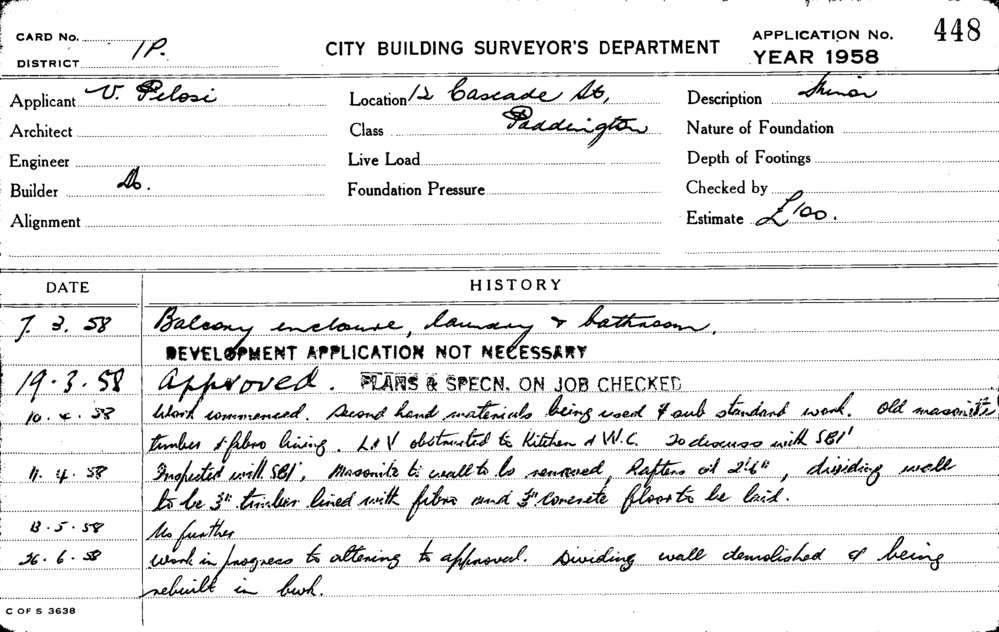 CARD No. 1P. CITY BUILDING SURVEYOR'S DEPARTMENT APPLICATION No. 448
DISTRICT YEAR 1958
Applicant V. Pelosi Location 12 Cascade St, Description Minor
Architect Class Paddington Nature of Foundation
Engineer Live Load Depth of Footings
Builder Do. Foundation Pressure Checked by
Alignment Estimate £100.
DATE HISTORY
7. 3. 58 Balcony enclosure, laundry & bathroom.
DEVELOPMENT APPLICATION NOT NECESSARY
19. 3. 58 Approved. PLANS & SPECN. ON JOB CHECKED
10. 4. 58 Work commenced. Second hand materials being used & sub standard work. Old masonite
timber & fibro lining. L & V obstructed to Kitchen & W.C. To discuss with SBI'
11. 4. 58 Inspected with SBI', Masonite to wall to be removed, Rafters at 2'6", dividing wall
to be 3" timber lined with fibro and 3" concrete floor to be laid.
13. 5. 58 No further
26. 6. 58 Work in progress to altering to approval. Dividing wall demolished & being
rebuilt in bwk.
C OF S 3638